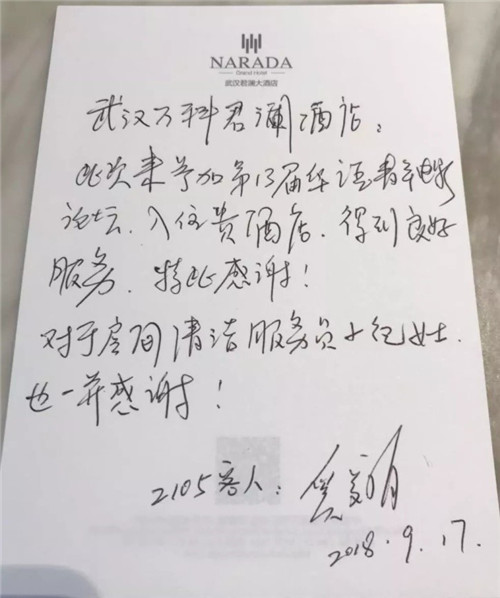 NARADA
Grand Hotel
武汉君澜大酒店
武汉万科君澜酒店:
此次来参加第13届华语青年电影
论坛、入住贵酒店、得到良好
服务、特此感谢!
对于房间清洁服务员小纪女士、
也一并感谢!
2105客人:
2018.9.17.